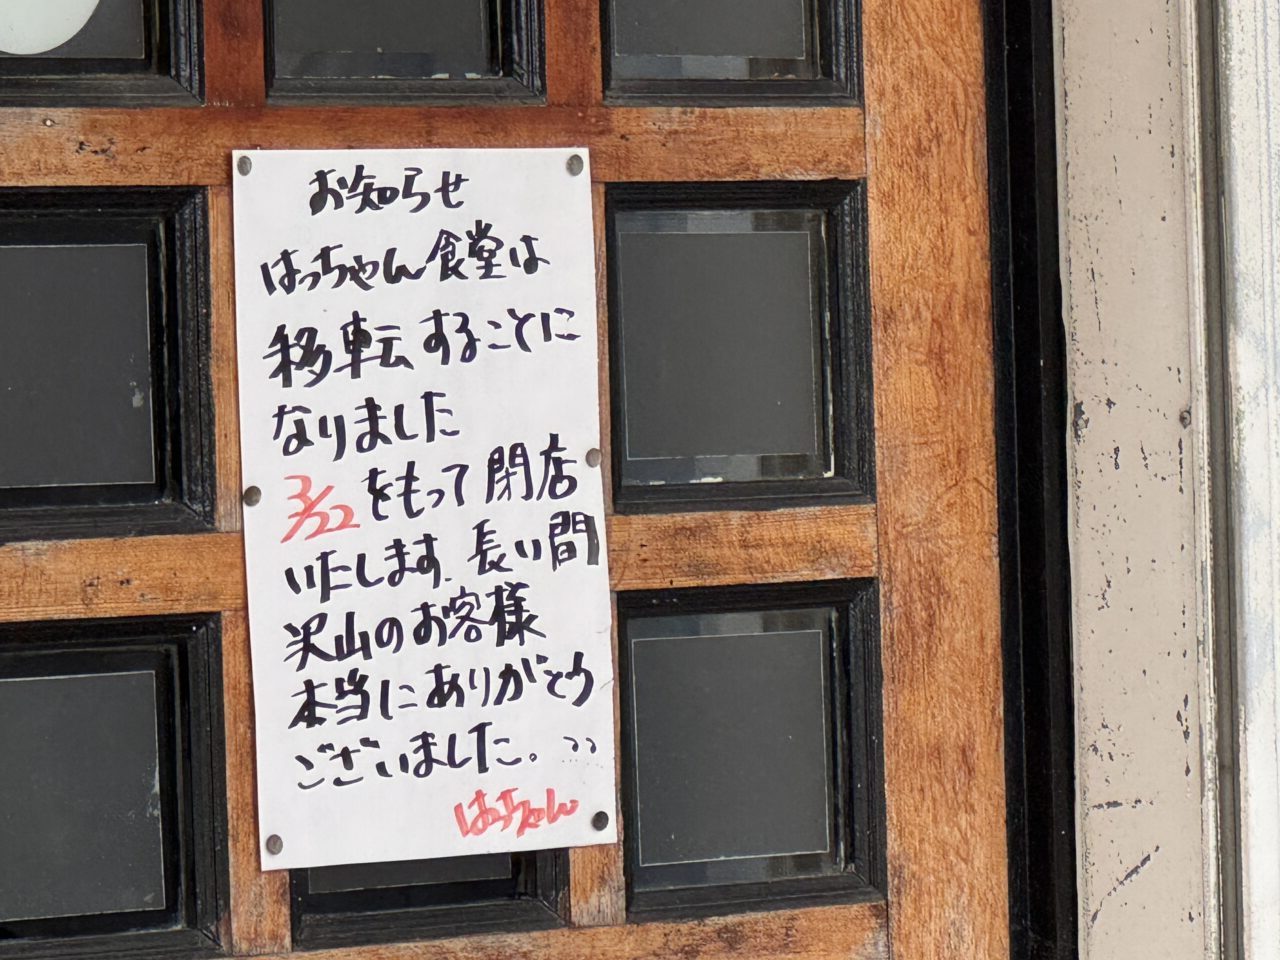 お知らせ
はっちゃん食堂は
移転することに
なりました
3/22をもって閉店
いたします。長い間
沢山のお客様
本当にありがとう
ございました。
はっちゃん